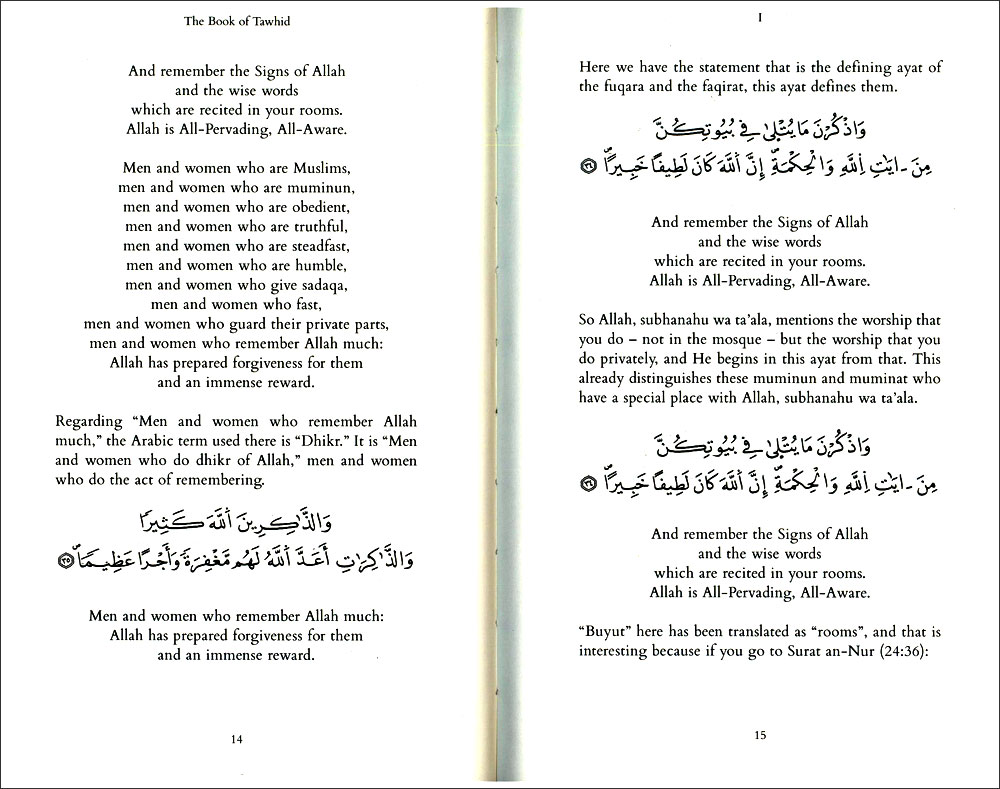 The Book of Tawhid
And remember the Signs of Allah
and the wise words
which are recited in your rooms.
Allah is All-Pervading, All-Aware.
Men and women who are Muslims,
men and women who are muminun,
men and women who are obedient,
men and women who are truthful,
men and women who are steadfast,
men and women who are humble,
men and women who give sadaqa,
men and women who fast,
men and women who guard their private parts,
men and women who remember Allah much:
Allah has prepared forgiveness for them
and an immense reward.
Regarding “Men and women who remember Allah
much,” the Arabic term used there is “Dhikr.” It is “Men
and women who do dhikr of Allah,” men and women
who do the act of remembering.
وَالذَّٰكِرِينَ اَللَّهَ كَثِيرًا
وَالذَّٰكِرَٰتِ أَعَدَّ اَللَّهُ لَهُم مَّغْفِرَةً وَأَجْرًا عَظِيمًا ۝٣٥
Men and women who remember Allah much:
Allah has prepared forgiveness for them
and an immense reward.
14
I
Here we have the statement that is the defining ayat of
the fuqara and the faqirat, this ayat defines them.
وَاذْكُرْنَ مَا يُتْلَىٰ فِي بُيُوتِكُنَّ
مِنَ ءَايَٰتِ اِللَّهِ وَالْحِكْمَةِ إِنَّ اَللَّهَ كَانَ لَطِيفًا خَبِيرًا ۝٣٤
And remember the Signs of Allah
and the wise words
which are recited in your rooms.
Allah is All-Pervading, All-Aware.
So Allah, subhanahu wa ta’ala, mentions the worship that
you do – not in the mosque – but the worship that you
do privately, and He begins in this ayat from that. This
already distinguishes these muminun and muminat who
have a special place with Allah, subhanahu wa ta’ala.
وَاذْكُرْنَ مَا يُتْلَىٰ فِي بُيُوتِكُنَّ
مِنَ ءَايَٰتِ اِللَّهِ وَالْحِكْمَةِ إِنَّ اَللَّهَ كَانَ لَطِيفًا خَبِيرًا ۝٣٤
And remember the Signs of Allah
and the wise words
which are recited in your rooms.
Allah is All-Pervading, All-Aware.
“Buyut” here has been translated as “rooms”, and that is
interesting because if you go to Surat an-Nur (24:36):
15